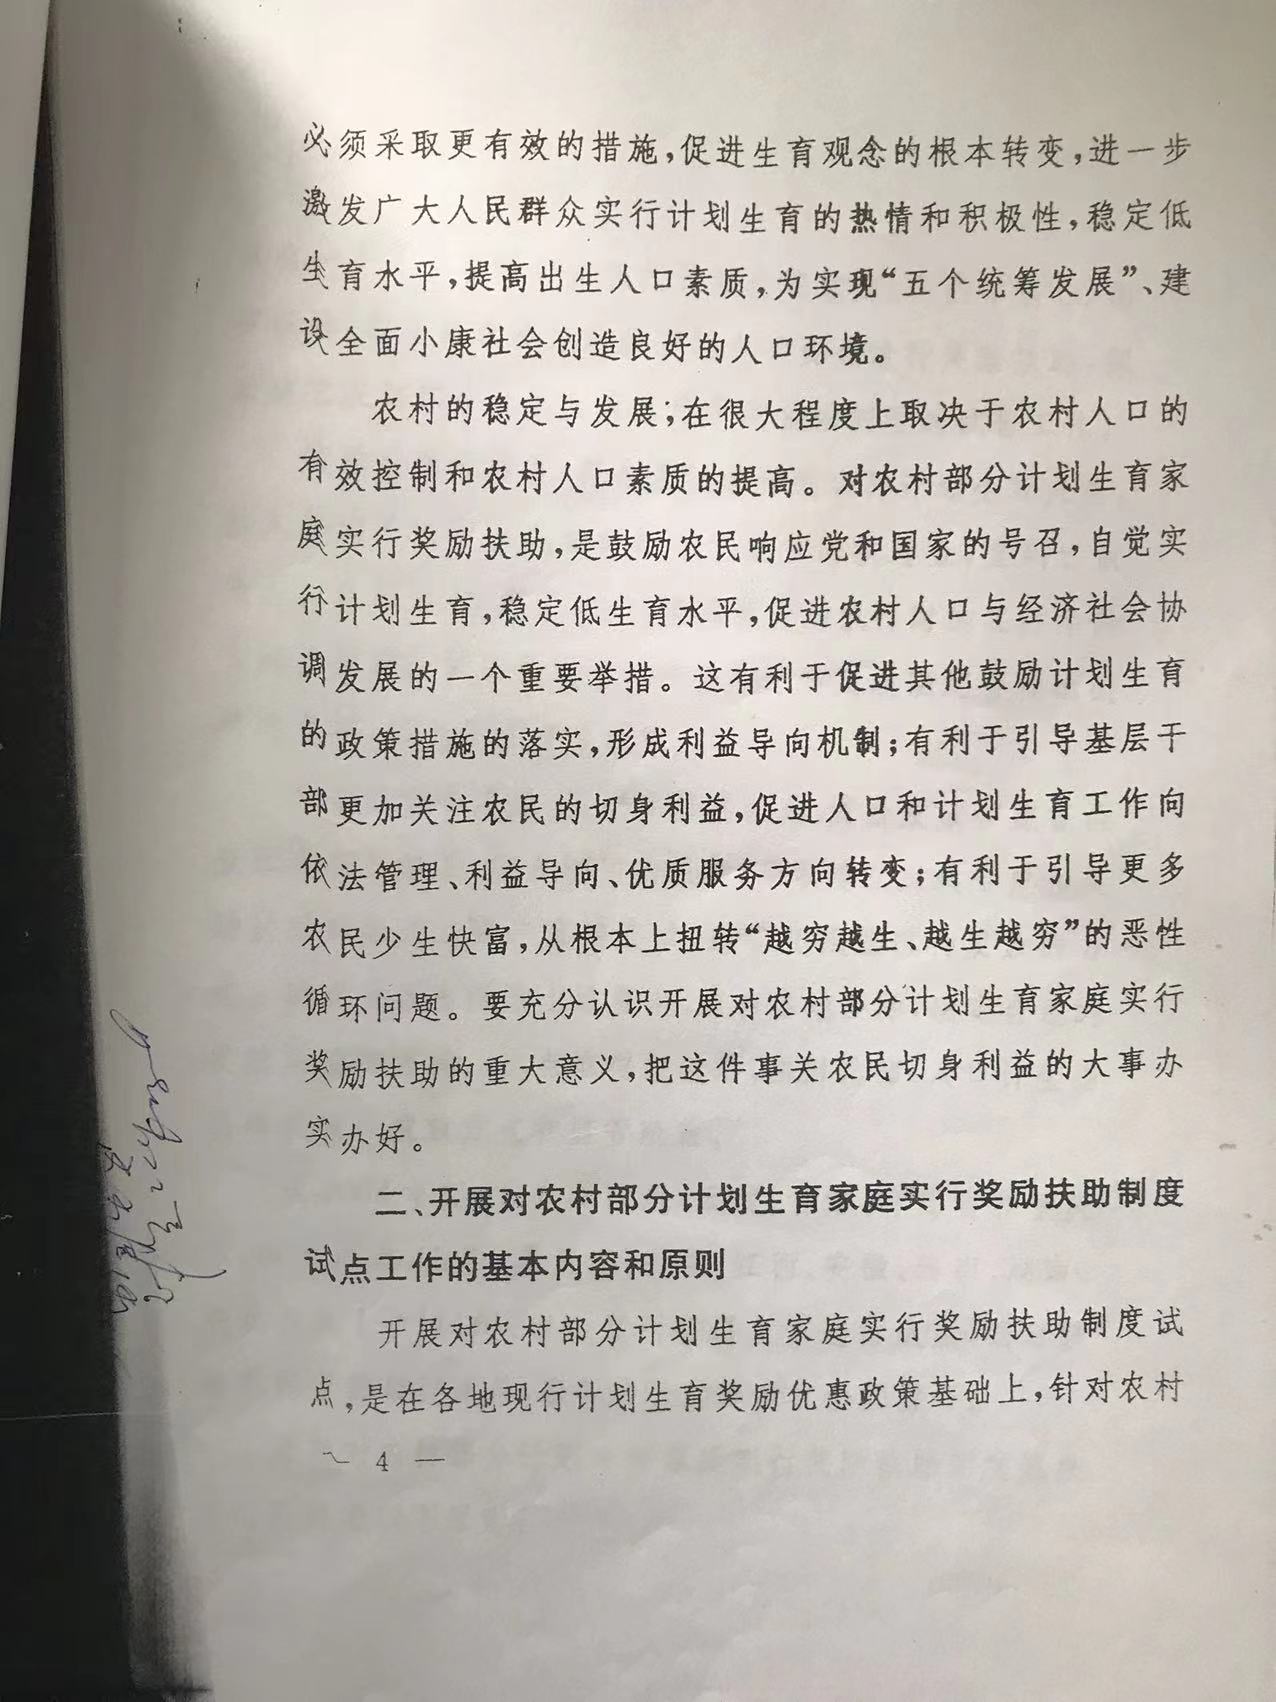 必须采取更有效的措施,促进生育观念的根本转变,进一步
激发广大人民群众实行计划生育的热情和积极性,稳定低
生育水平,提高出生人口素质,为实现“五个统筹发展”、建
设全面小康社会创造良好的人口环境。
农村的稳定与发展;在很大程度上取决于农村人口的
有效控制和农村人口素质的提高。对农村部分计划生育家
庭实行奖励扶助,是鼓励农民响应党和国家的号召,自觉实
行计划生育,稳定低生育水平,促进农村人口与经济社会协
调发展的一个重要举措。这有利于促进其他鼓励计划生育
的政策措施的落实,形成利益导向机制;有利于引导基层干
部更加关注农民的切身利益,促进人口和计划生育工作向
依法管理、利益导向、优质服务方向转变;有利于引导更多
农民少生快富,从根本上扭转“越穷越生、越生越穷”的恶性
循环问题。要充分认识开展对农村部分计划生育家庭实行
奖励扶助的重大意义,把这件事关农民切身利益的大事办
实办好。
二、开展对农村部分计划生育家庭实行奖励扶助制度
试点工作的基本内容和原则
开展对农村部分计划生育家庭实行奖励扶助制度试
点,是在各地现行计划生育奖励优惠政策基础上,针对农村
— 4 —